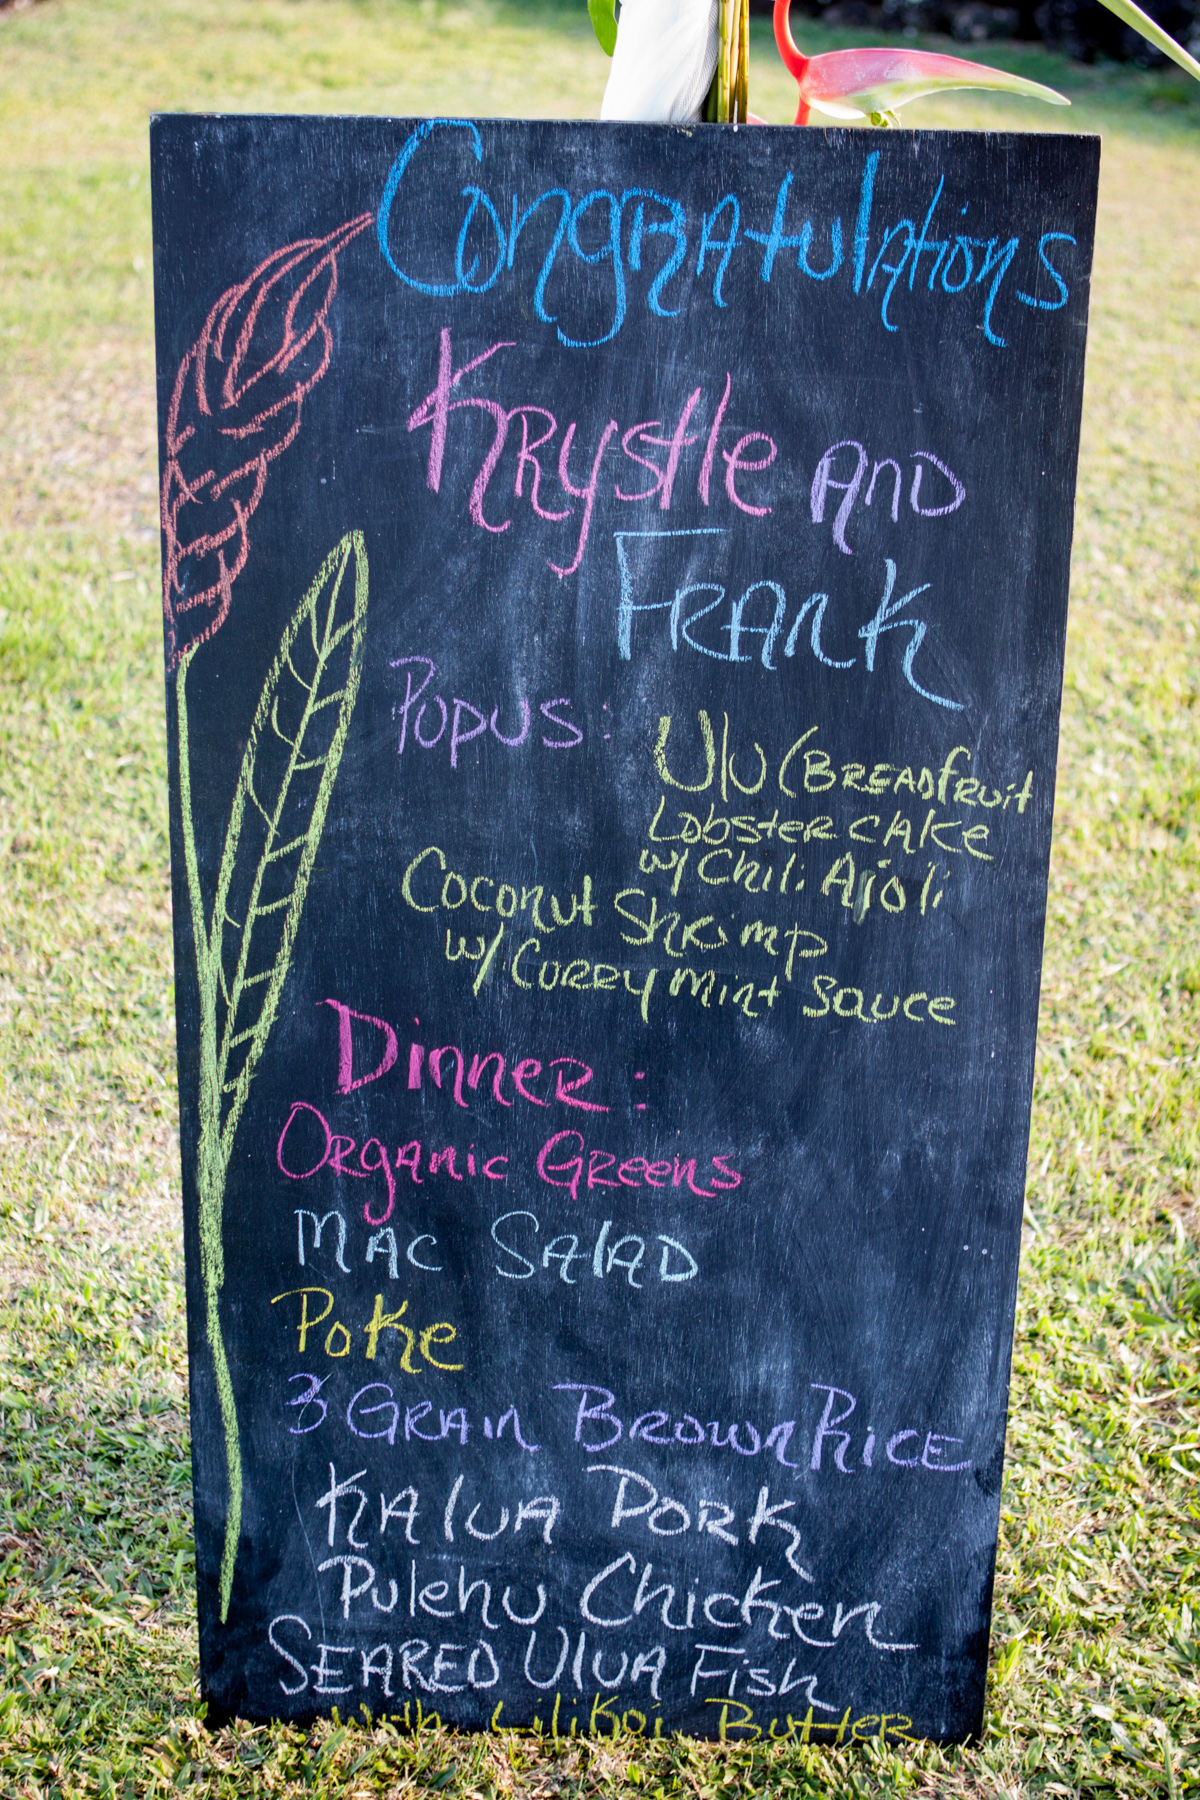 Congratulations
Krystle and
Frank
Pupus:
Ulu (Breadfruit
Lobster cake
w/ Chili Aioli
Coconut Shrimp
w/ Curry mint Sauce
Dinner:
Organic Greens
Mac Salad
Poke
3 Grain Brown Rice
Kalua Pork
Pulehu Chicken
Seared Ulua Fish
with Lilikoi Butter